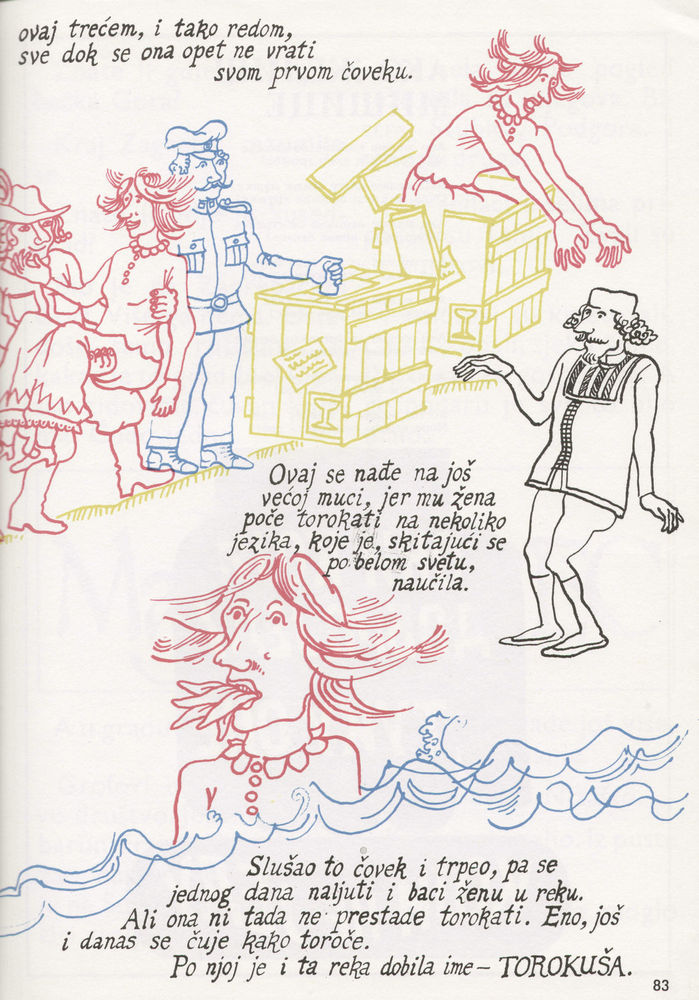 ovaj trećem, i tako redom,
sve dok se ona opet ne vrati
svom prvom čoveku.
Ovaj se nađe na još
većoj muci, jer mu žena
poče torokati na nekoliko
jezika, koje je, skitajući se
po belom svetu,
naučila.
Slušao to čovek i trpeo, pa se
jednog dana naljuti i baci ženu u reku.
Ali ona ni tada ne prestade torokati. Eno, još
i danas se čuje kako toroče.
Po njoj je i ta reka dobila ime – TOROKUŠA.
83